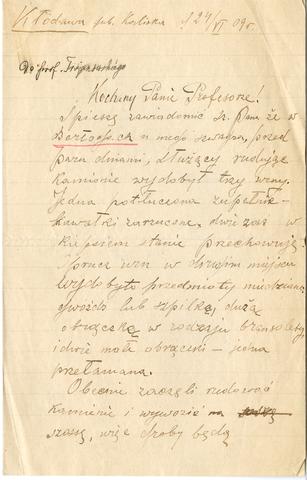 Kłodawa gub. Kaliska d 24/VI 09 r.
Do Prof.
Kochany Panie Profesorze!
Spieszę zawiadomić Sz. Pana że w
u mego szwagra, przed
paru dniami, służący rudując
kamienie wydobył trzy urny.
Jedna potłuczona zupełnie
kawałki zarzucone, dwie zaś w
kiepskiem stanie przechowuję.
Oprócz urn w drugim miejscu
wydobyto przedmioty miedziane,
gwóźdź lub szpilkę, dużą
obrączkę w rodzaju bransolety,
i dwie małe obrączki – jedna
przełamana.
Obecnie zaczęli rudować
kamienie i wywozić na
szosę, więc groby będą